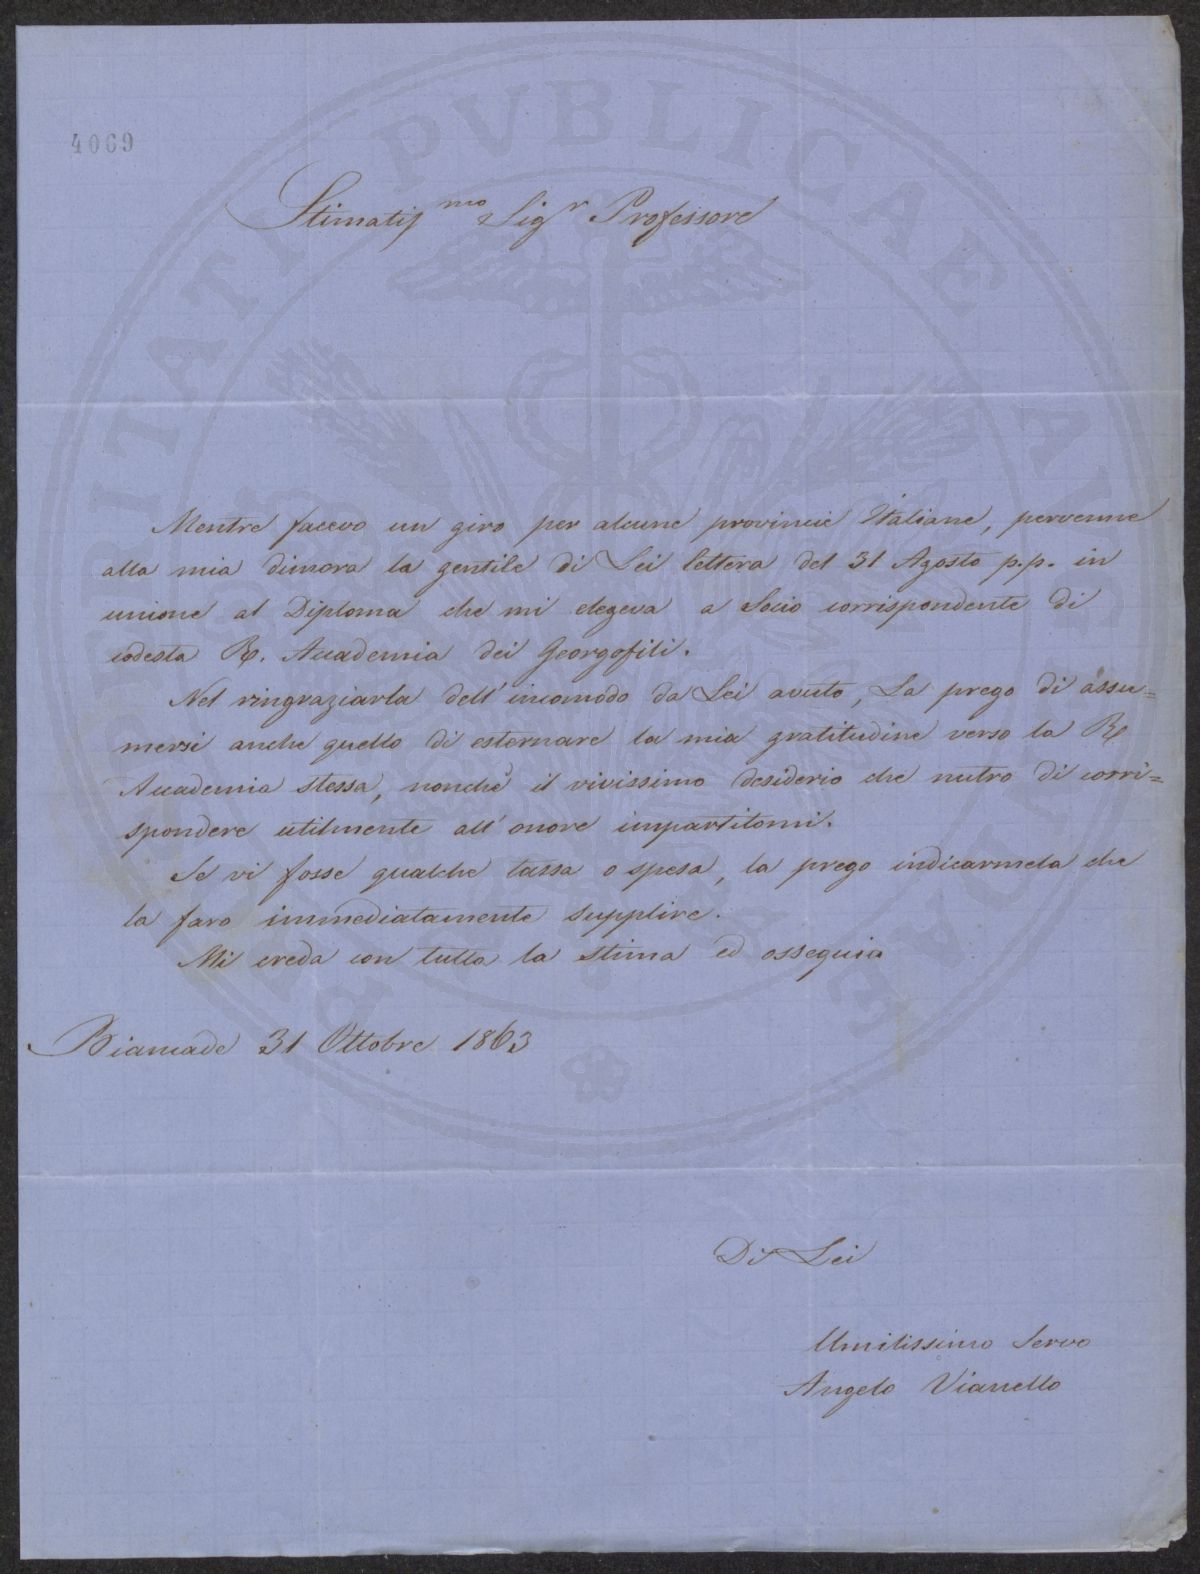 4069
PROSPERITATI PVBLICAE AVGENDAE
Stimatiss.mo Sig.r Professore
Mentre facevo un giro per alcune provincie Italiane, pervenne
alla mia dimora la gentile di Lei lettera del 31 Agosto p.p. in
unione al Diploma che mi elegeva a Socio corrispondente di
codesta R. Accademia dei Georgofili.
Nel ringraziarla dell'incomodo da Lei avuto, La prego di assu=
mersi anche quello di esternare la mia gratitudine verso la R.
Accademia stessa, nonchè il vivissimo desiderio che nutro di corri=
spondere utilmente all'onore impartitomi.
Se vi fosse qualche tassa o spesa, la prego indicarmela che
la faro immediatamente supplire.
Mi creda con tutta la stima ed ossequio
Biancade 31 Ottobre 1863
Di Lei
Umilissimo Servo
Angelo Vianello